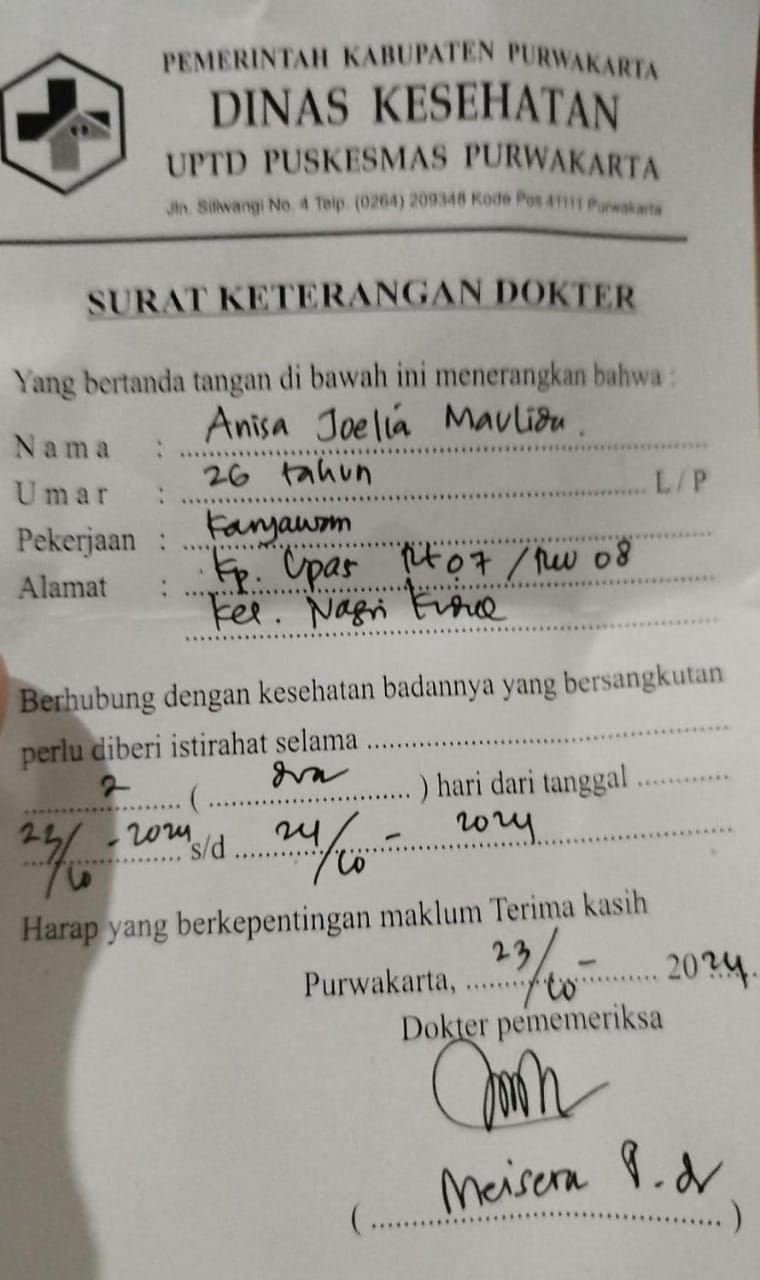 PEMERINTAH KABUPATEN PURWAKARTA
DINAS KESEHATAN
UPTD PUSKESMAS PURWAKARTA
Jln. Siliwangi No. 4 Telp. (0264) 209348 Kode Pos 41111 Purwakarta
SURAT KETERANGAN DOKTER
Yang bertanda tangan di bawah ini menerangkan bahwa :
Nama : Anisa Joelia Maulida.
Umar : 26 tahun L / P
Pekerjaan : Karyawan
Alamat : Kp. Cipas Rt 07 / Rw 08
Kel. Nagri
Berhubung dengan kesehatan badannya yang bersangkutan
perlu diberi istirahat selama ..............................
2 ( dua ) hari dari tanggal ............
23/10 - 2024 s/d 24/10 - 2024
Harap yang berkepentingan maklum Terima kasih
Purwakarta, 23/10 - 2024.
Dokter pememeriksa
( Meisera P. dr )